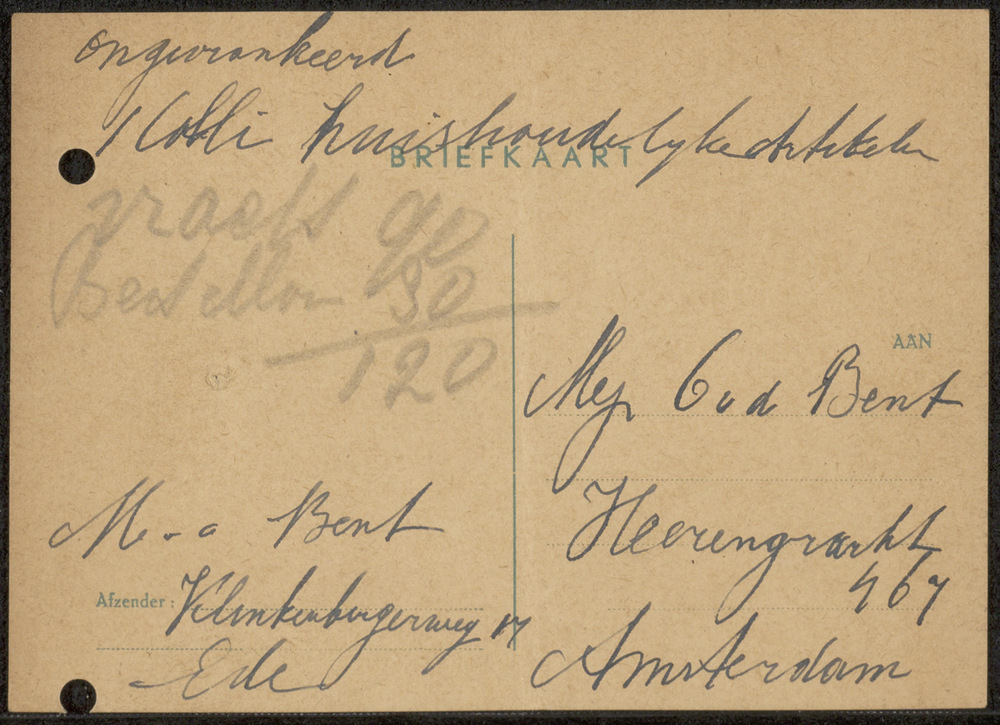 ongevrankeerd
1 Colli huishoudelyke Artikelen
BRIEFKAART
vracht 90
Bestellen 30
120
AAN
Mej Bent
Heerengracht
467
Amsterdam
Bent
Afzender: Klinkenbergerweg 17
Ede